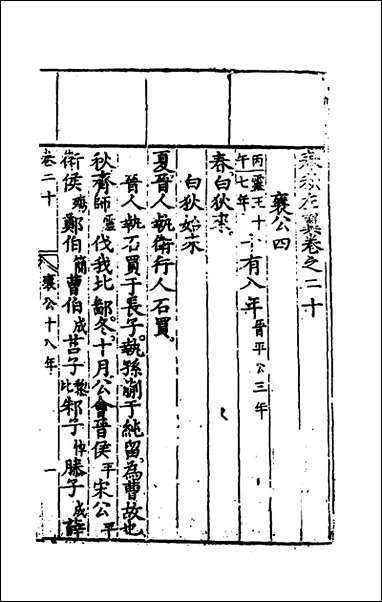 春秋左翼卷之二十
襄公四
丙午 靈王十七年 十有八年 晉平公三年
春、白狄來。
白狄始來
夏、晉人執衛行人石買。
晉人執石買于長子。執孫蒯于純留。為曹故也
秋、齊師靈伐我北鄙。冬、十月、公會晉侯平宋公平
衛侯殤鄭伯簡曹伯成莒子黎比邾子悼滕子成薛
卷二十 襄公十八年 一